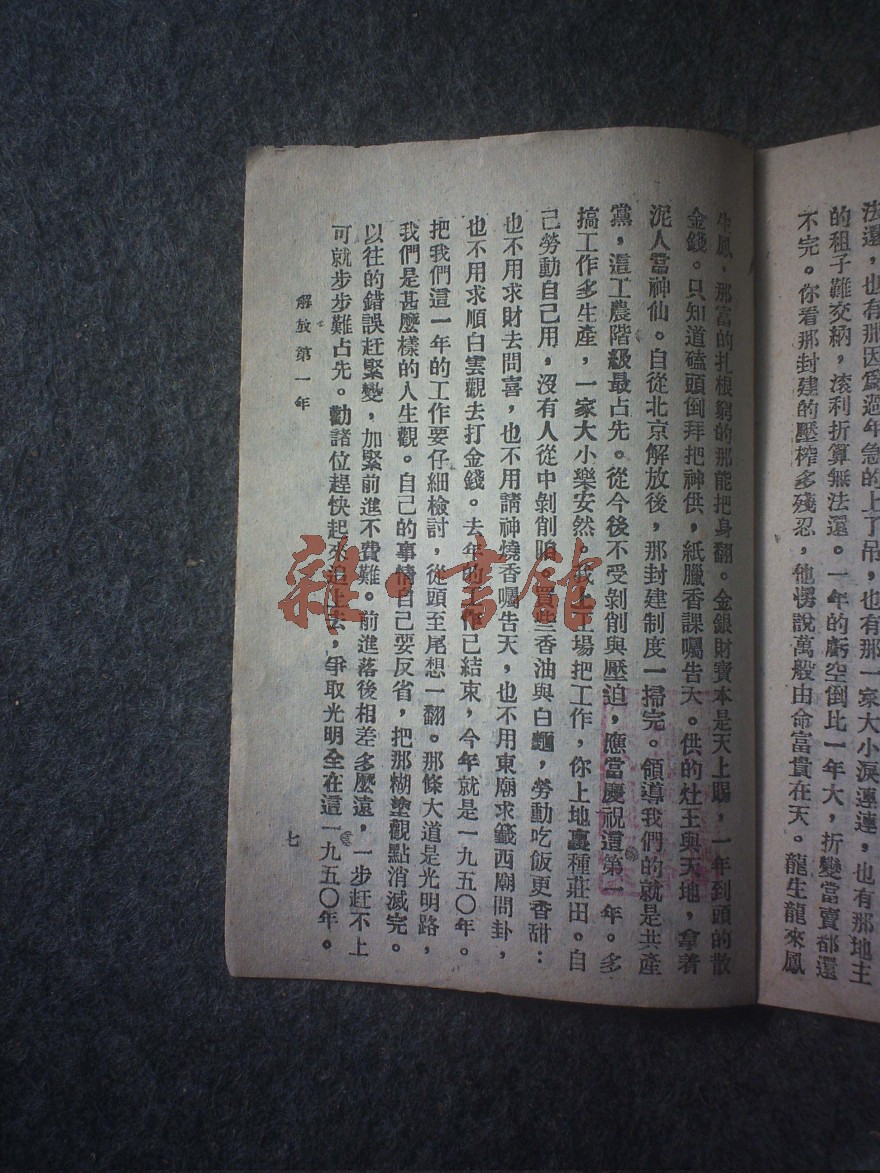 法還，也有那因爲過年急的上了吊，也有那一家大小淚連連，也有那地主
的租子難交納，滚利折算無法還。一年的虧空倒比一年大，折變當賣都還
不完。你看那封建的壓榨多殘忍，他愣說萬般由命富貴在天。龍生龍來鳳
生鳳，那富的扎根窮的那能把身翻。金銀財寶本是天上賜，一年到頭的散
金錢。只知道磕頭倒拜把神供，紙臘香課囑告天。供的灶王與天地，拿着
泥人當神仙。自從北京解放後，那封建制度一掃完。領導我們的就是共產
黨，這工農階級最占先。從今後不受剝削與壓迫，應當慶祝這第一年。多
搞工作多生產，一家大小樂安然。我上工場把工作，你上地裏種莊田。自
己勞動自己用，沒有人從中剝削賺。買些香油與白麵，勞動吃飯更香甜：
也不用求財去問喜，也不用請神燒香囑告天，也不用東廟求籤西廟問卦，
也不用求順白雲觀去打金錢。去年的工作已結束，今年就是一九五〇年。
把我們這一年的工作要仔細檢討，從頭至尾想一翻。那條大道是光明路，
我們是甚麼樣的人生觀。自己的事情自己要反省，把那糊塗觀點消滅完。
以往的錯誤赶緊變，加緊前進不費難。前進落後相差多麼遠，一步赶不上
可就步步難占先。勸諸位趕快起來追上去，爭取光明全在這一九五〇年。
解放第一年
七
雜·書館